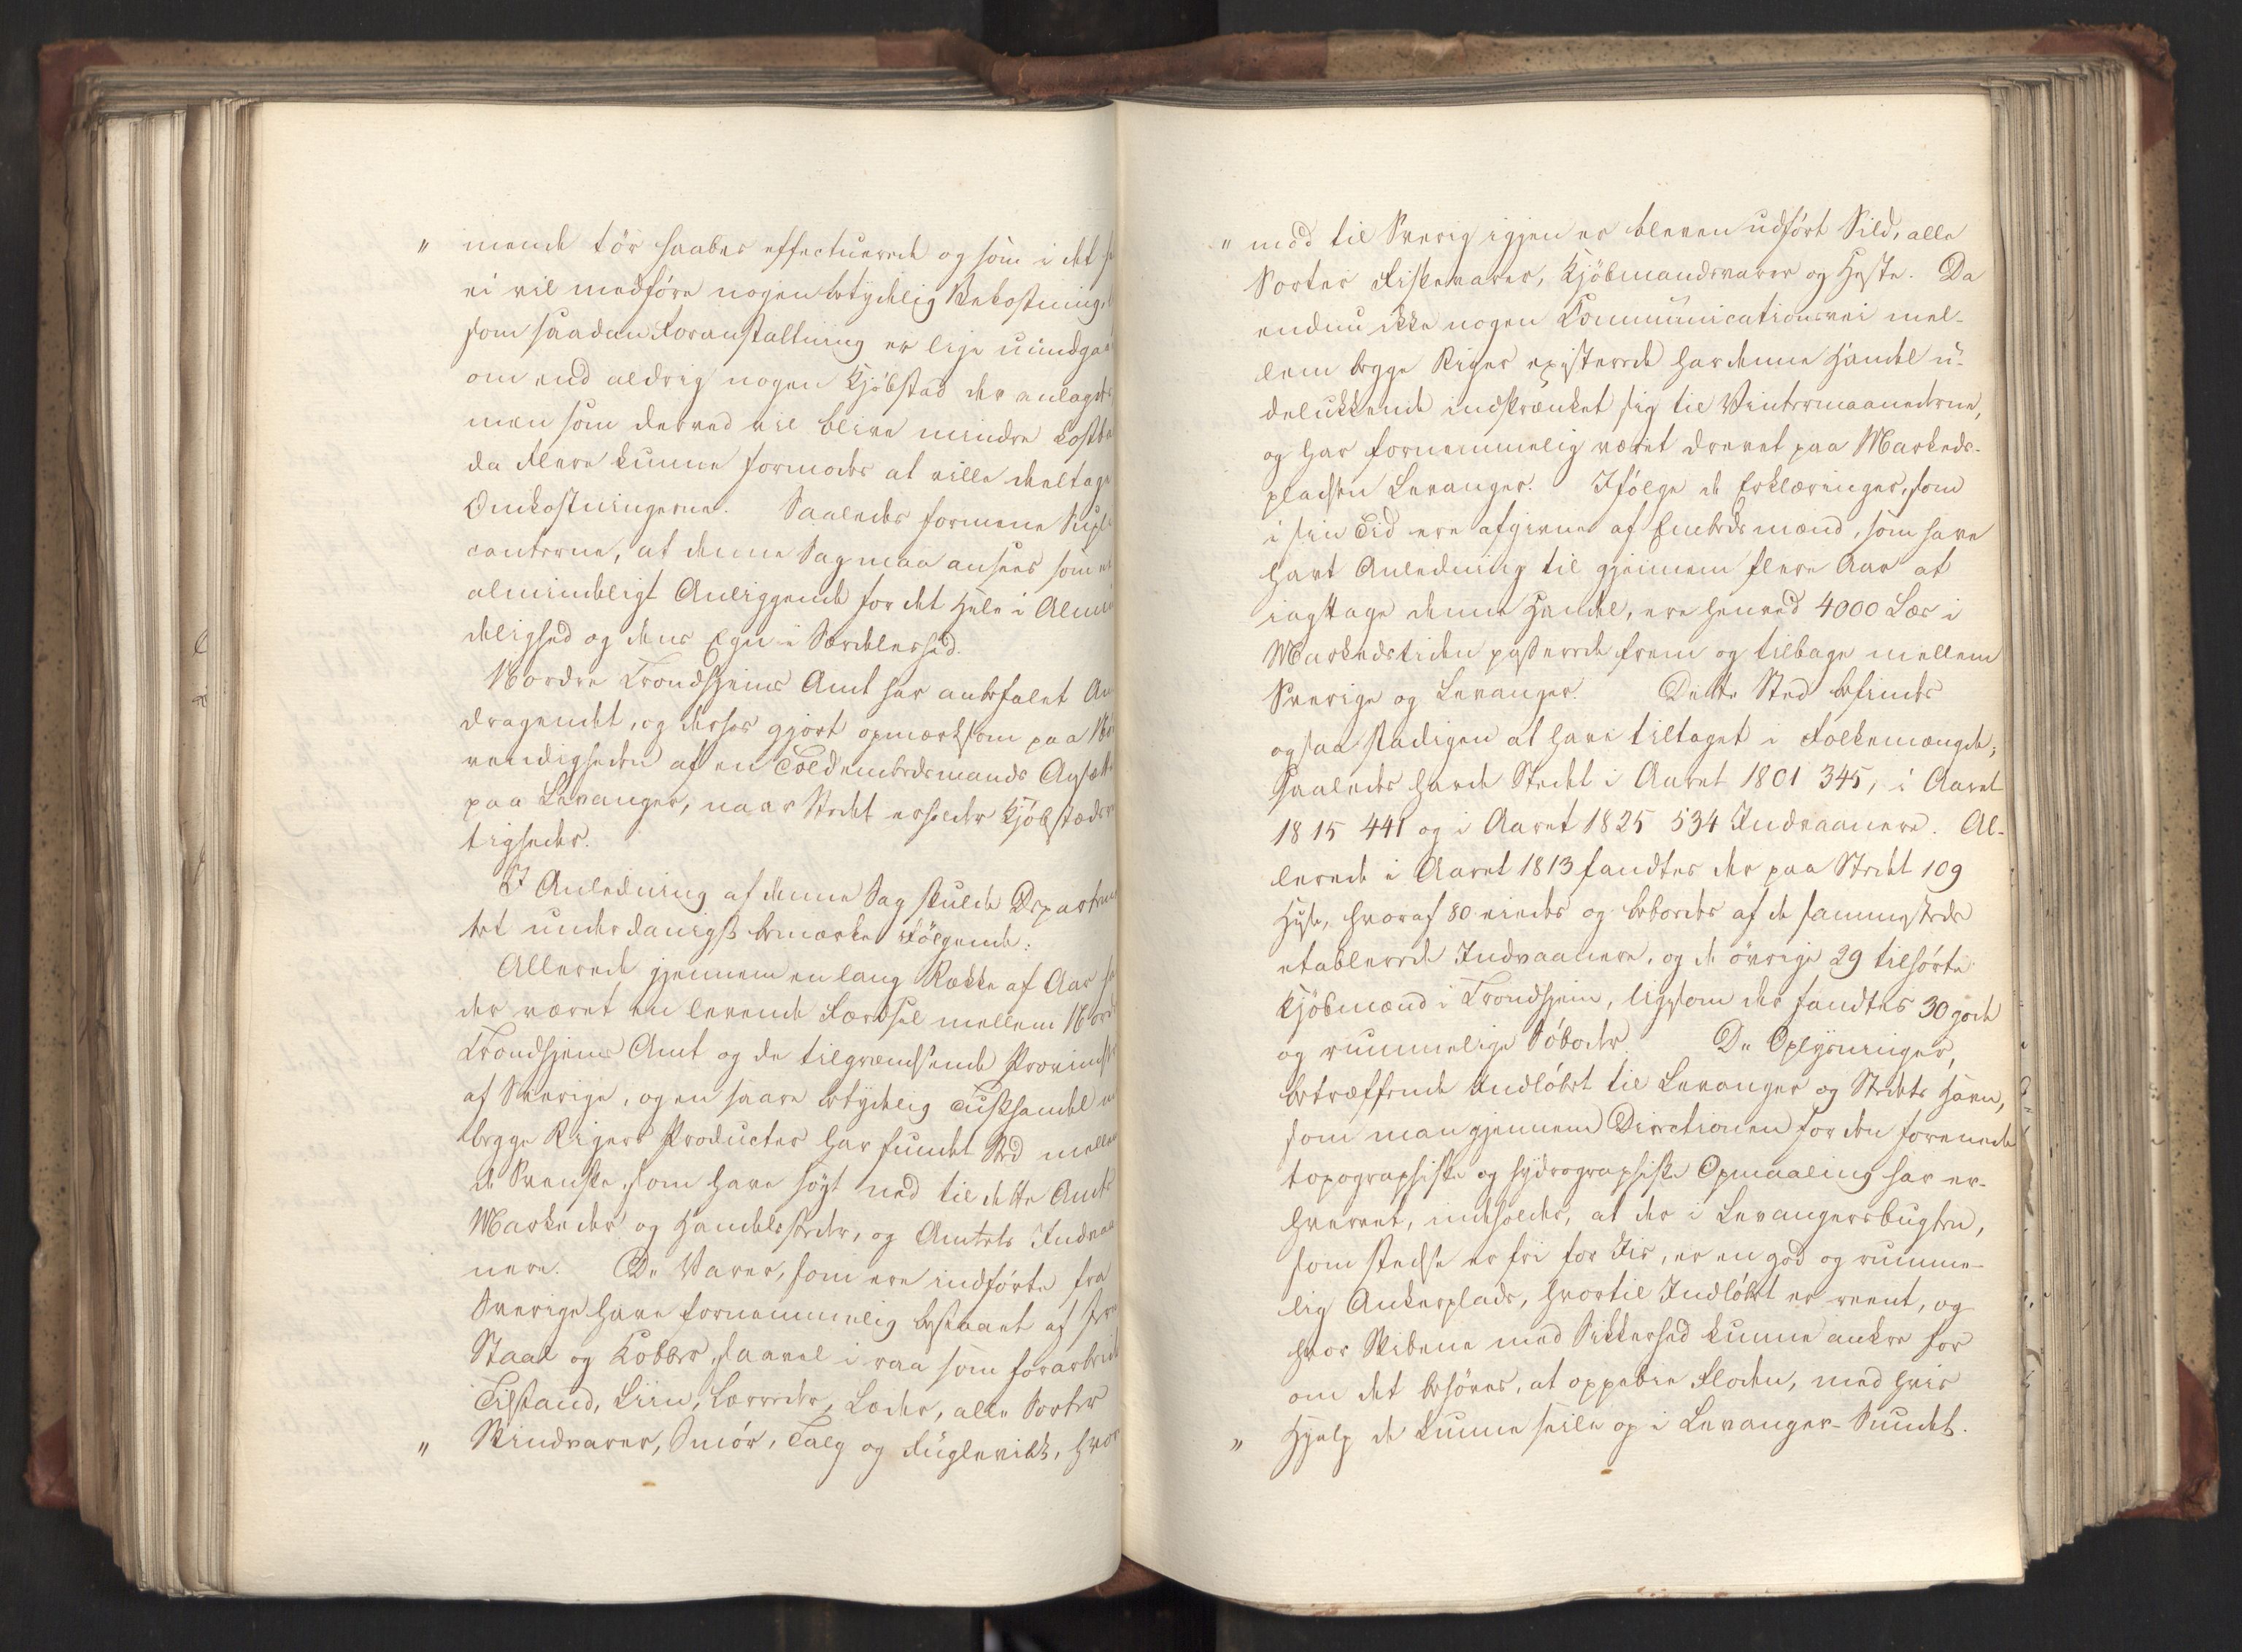 " mende tör haabes effectuerede og som i det
ei vil medføre nogen betydelig Bekostning,
som saadan Foranstaltning er lige uundgaa
om end aldrig nogen Kjöbstad der anlagdes
men som derved vil blive mindre kostba
da flere kunne formodes at ville deeltage
Omkostningerne. Saaledes formene Supli
canterne, at denne Sag maa ansees som et
almindeligt Anliggende for det Hele i Almin
delighed og dens Egn i Særdeleshed.
Nordre Trondhjems Amt har anbefalet An
dragendet, og derhos gjort opmærksom paa Nöd
vendigheden af en Toldembedsmands Ansætt
paa Levanger, naar Stedet erholder Kjöbstædret
tigheder.
I Anledning af denne Sag skulde Departemen
tet underdanigst bemærke Fölgende:
Allerede gjennem en lang Række af Aar ha
der været en levende Færdsel mellem Nord
Trondhjems Amt og de tilgrændsende Provindse
af Sverige, og en saare betydelig Tuskhandel
begge Rigers Producter har fundet Sted mellem
de Svenske, som have søgt ned til dette Amts
Markeder og Handelssteder, og Amtets Indvaa
nere. De Varer, som ere indførte fra
Sverige have fornemmelig bestaaet af Jern
Staal og Kobber, saavel i raa som forarbeidet
Tilstand, Liin, Lærreder, Læder, alle Sorter
" Skindvarer, Smör, Talg og Fuglevildt, hvor
" mod til Sverig igjen er bleven udført Sild, alle
Sorter Fiskevarer, Kjöbmandsvarer og Heste. Da
endnu ikke nogen Communicationsvei mel-
lem begge Riger existerede har denne Handel u-
delukkende indskrænket sig til Vintermaanederne,
og har fornemmelig været drevet paa Markeds-
pladsen Levanger. Ifølge de Erklæringer, som
i sin Tid ere afgivne af Embedsmænd, som have
havt Anledning til gjennem flere Aar at
iagttage denne Handel, ere henved 4000 Læs i
Markedstiden passerede frem og tilbage mellem
Sverige og Levanger. Dette Sted befindes
ogsaa stadigen at have tiltaget i Folkemængde;
saaledes havde Stedet i Aaret 1801 345, i Aaret
1815 441 og i Aaret 1825 534 Indvaanere. Al-
lerede i Aaret 1813 fandtes der paa Stedet 109
Huse, hvoraf 80 eiedes og beboedes af de sammesteds
etablerede Indvaanere, og de övrige 29 tilhørte
Kjöbmænd i Trondhjem, ligesom der fandtes 30 gode
og rummelige Söboder. De Oplysninger,
betræffende Indlöbet til Levanger og Stedets Havn,
som man gjennem Directionen for den forenede
topographiske og hydrographiske Opmaaling har er-
hvervet, indeholder, at der i Levangersbugten,
som stedse er fri for Iis, er en god og rumme-
lig Ankerplads, hvortil Indløbet er reent, og
hvor Skibene med Sikkerhed kunne ankre for
om det behøves, at oppebie Floden, med hvis
" Hjelp de kunne seile op i Levanger-Sundet.